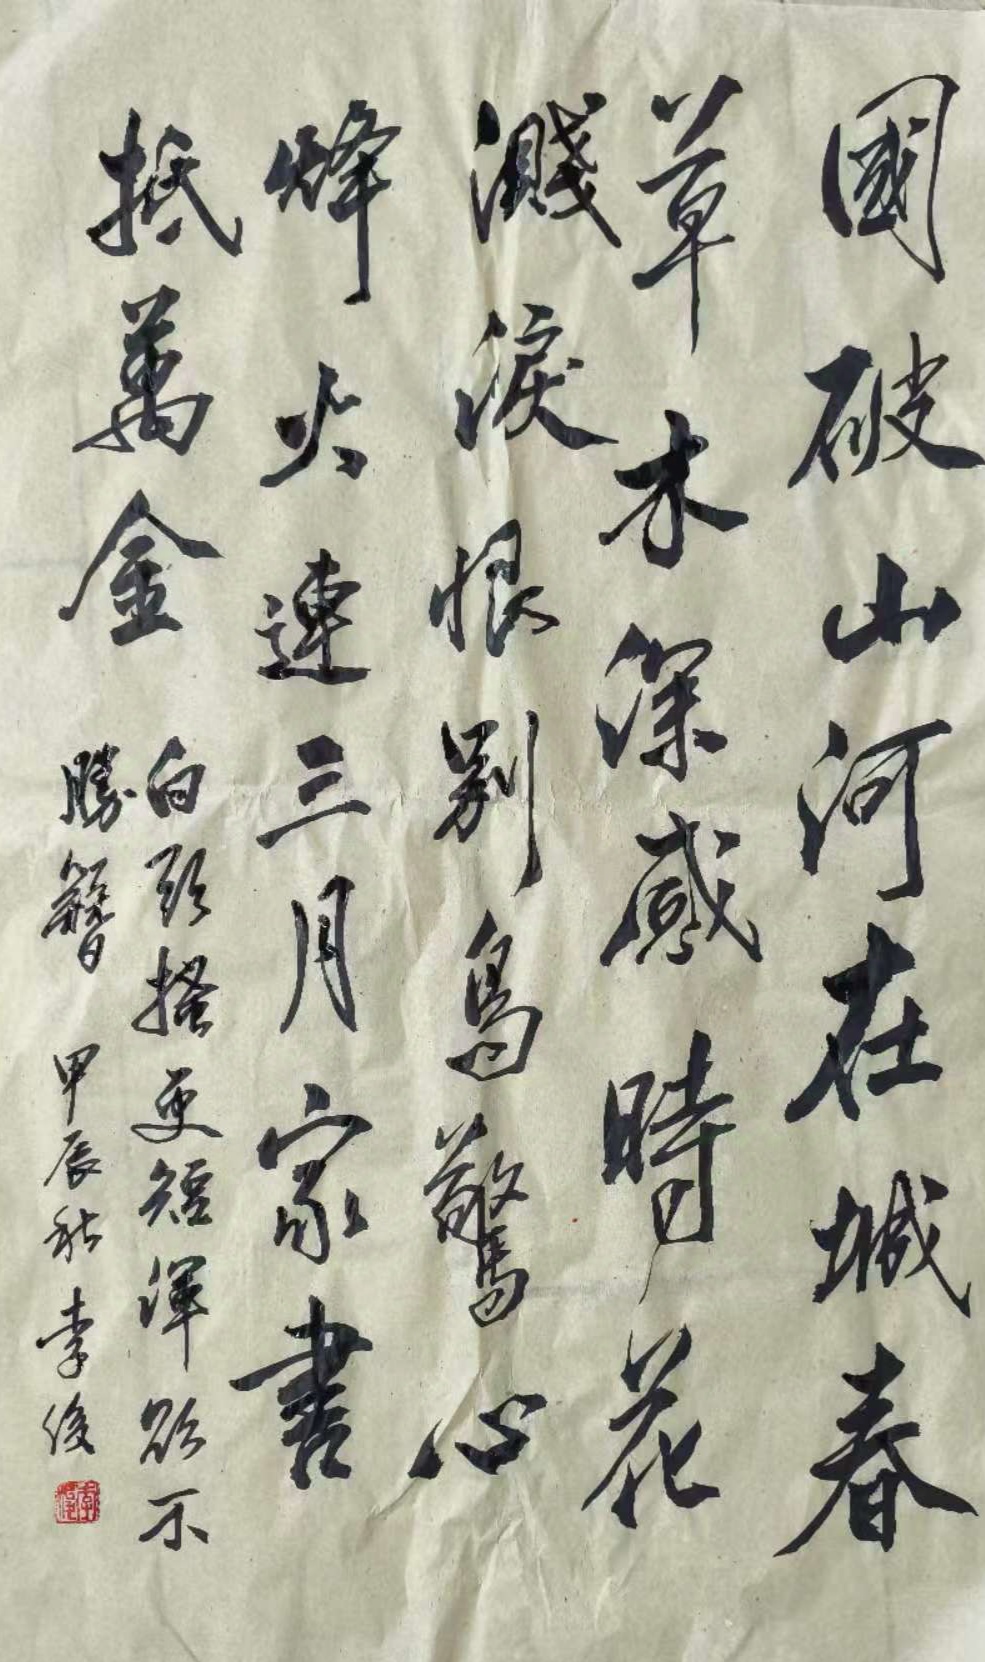 國破山河在城春
草木深感時花
濺淚恨别鳥驚心
烽火連三月家書
抵萬金
白頭搔更短渾欲不
勝簪
甲辰秋李俊
李俊